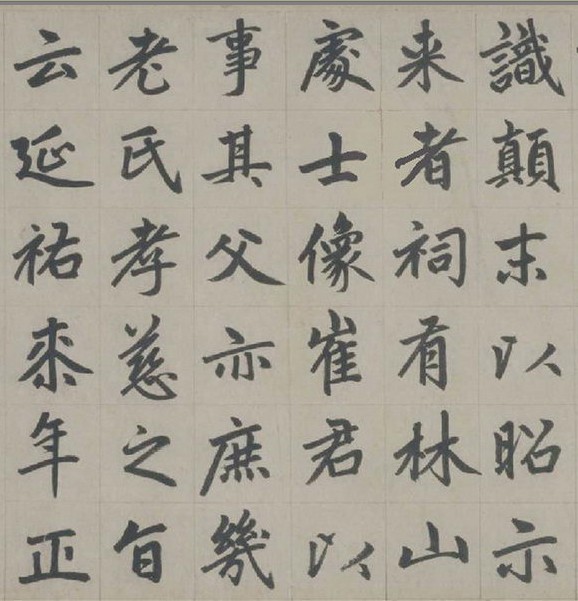 識顛末以昭示
来者祠有林山
處士像崔君以
事其父亦庶幾
老氏孝慈之旨
云延祐桼年正